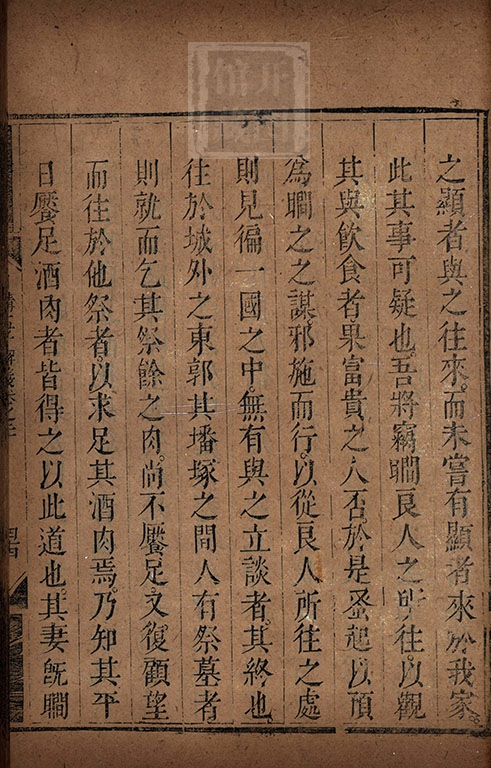 之顯者與之往來而未嘗有顯者來於我家
此其事可疑也吾將竊瞷良人之所往以觀
其與飲食者果富貴之人否於是蚤起以預
為瞷之之謀邪施而行以從良人所往之處
則見徧一國之中無有與之立談者其終也
往於城外之東郭其墦塚之間人有祭墓者
則就而乞其祭餘之肉尚不饜足又復顧望
而往於他祭者以求足其酒肉焉乃知其平
日饜足酒肉者皆得之以此道也其妻既瞷